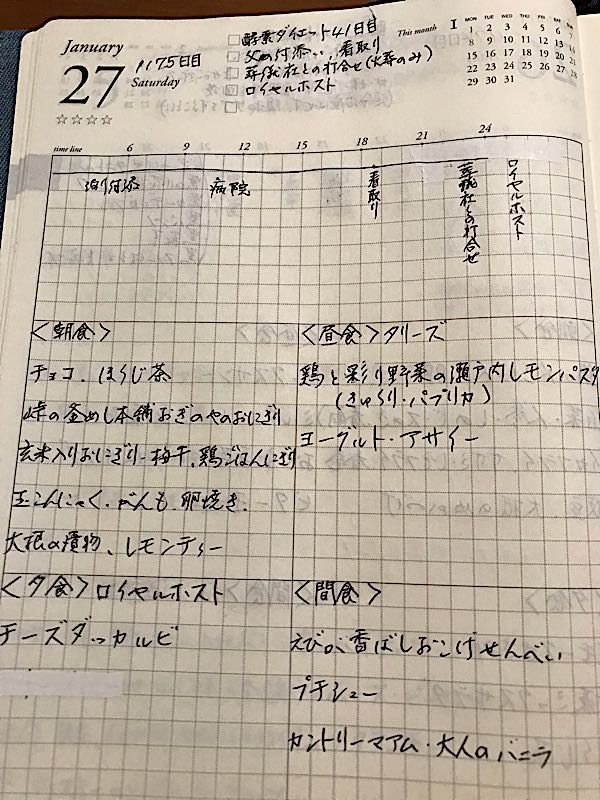 January
27
Saturday
1175日目
酵素ダイエット41日目
父の付添い、看取り
葬儀社との打合せ(火葬のみ)
ロイヤルホスト
This month 1
MON TUE WED THU FRI SAT SUN
1 2 3 4 5 6 7
8 9 10 11 12 13 14
15 16 17 18 19 20 21
22 23 24 25 26 27 28
29 30 31
time line 6 9 12 15 18 21 24
泊り付添
病院
看取り
葬儀社との打合せ
ロイヤルホスト
<朝食>
チョコ、ほうじ茶
峠の釜めし本舗おぎのやのおにぎり
玄米入りおにぎり-梅干、鶏ごはんにぎり
玉こんにゃく・がんも・卵焼き、
大根の漬物、レモンティー
<昼食>タリーズ
鶏と彩り野菜の瀬戸内レモンパスタ
(きゅうり・パプリカ)
ヨーグルト・アサイー
<夕食>ロイヤルホスト
チーズダッカルビ
<間食>
えびが香ばしおこげせんべい
プチシュー
カントリーマアム・大人のバニラ